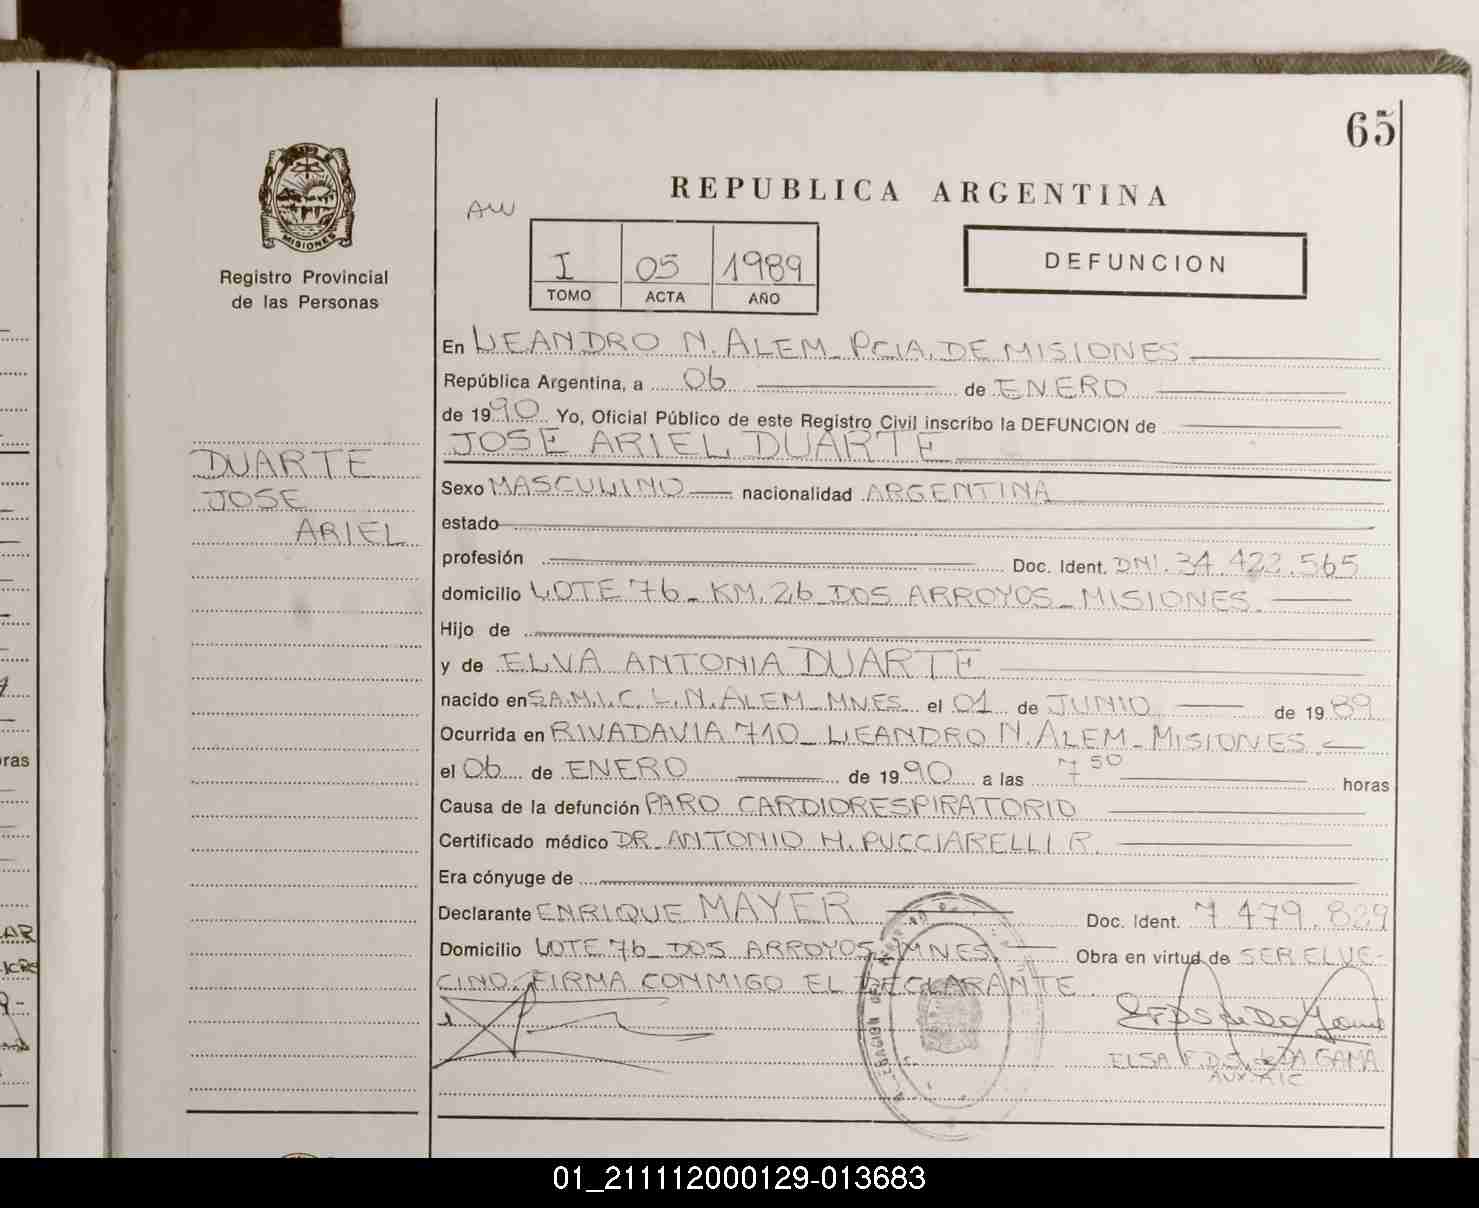 65
REPUBLICA ARGENTINA
AW
MISIONES
Registro Provincial
de las Personas
I 05 1989
TOMO ACTA AÑO
DEFUNCION
En LEANDRO N. ALEM - PCIA. DE MISIONES
República Argentina, a 06 de ENERO
de 1990 Yo, Oficial Público de este Registro Civil inscribo la DEFUNCION de
JOSE ARIEL DUARTE
DUARTE
JOSE
ARIEL
Sexo MASCULINO nacionalidad ARGENTINA
estado
profesión Doc. Ident. DNI. 34.422.565
domicilio LOTE 76 - KM. 26 - DOS ARROYOS - MISIONES.
Hijo de
y de ELVA ANTONIA DUARTE
nacido en S.A.M.I.C. L. N. ALEM - MNES el 01 de JUNIO de 1989
Ocurrida en RIVADAVIA 710 - LEANDRO N. ALEM - MISIONES.
el 06 de ENERO de 1990 a las 7 50 horas
Causa de la defunción PARO CARDIORESPIRATORIO
Certificado médico DR. ANTONIO H. PUCCIARELLI R.
Era cónyuge de
Declarante ENRIQUE MAYER Doc. Ident. 7.479.829
Domicilio LOTE 76 - DOS ARROYOS - MNES. Obra en virtud de SER EL VE-
CINO. FIRMA CONMIGO EL DECLARANTE.
ELSA F.D.S. de DA GAMA
AUX.
01_211112000129-013683